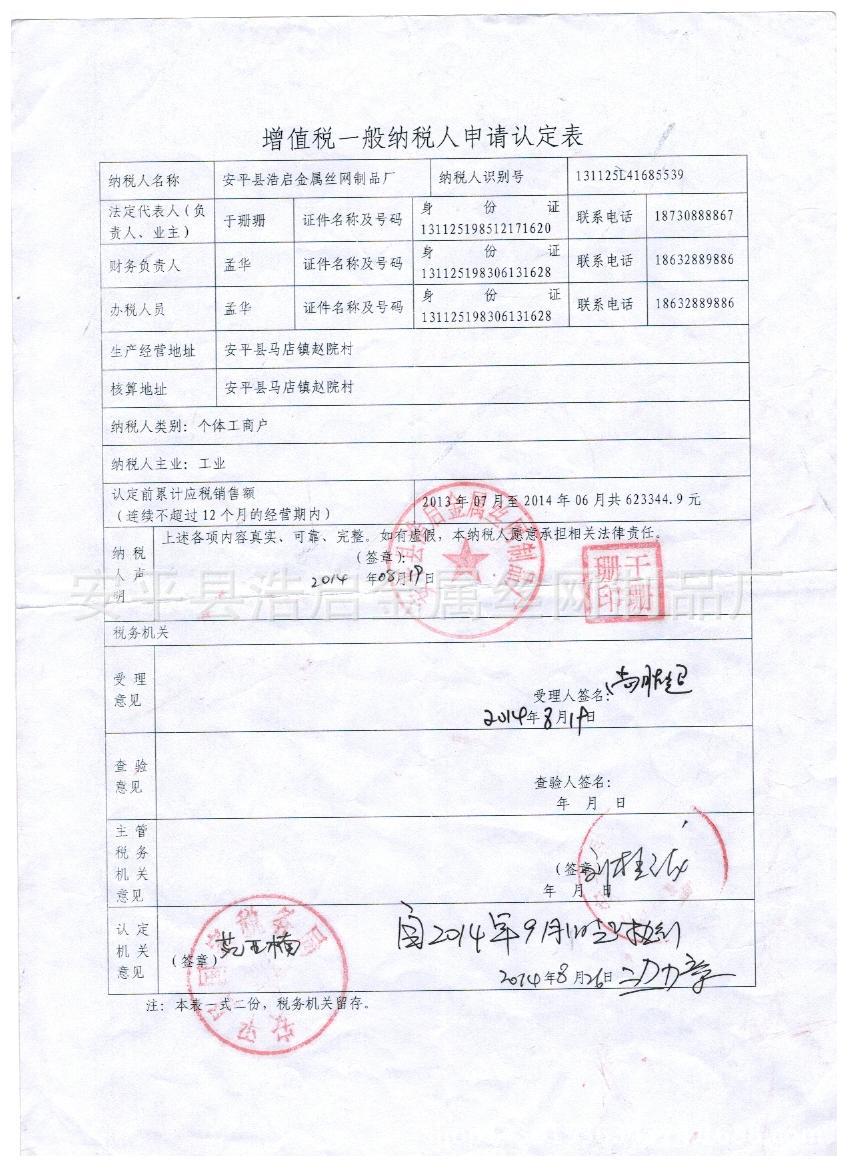 增值税一般纳税人申请认定表
纳税人名称 安平县浩启金属丝网制品厂 纳税人识别号 131125L41685539
法定代表人（负责人、业主） 于珊珊 证件名称及号码 身份证 131125198512171620 联系电话 18730888867
财务负责人 孟华 证件名称及号码 身份证 131125198306131628 联系电话 18632889886
办税人员 孟华 证件名称及号码 身份证 131125198306131628 联系电话 18632889886
生产经营地址 安平县马店镇赵院村
核算地址 安平县马店镇赵院村
纳税人类别：个体工商户
纳税人主业：工业
认定前累计应税销售额
（连续不超过12个月的经营期内） 2013年07月至2014年06月共623344.9元
纳税人声明 上述各项内容真实、可靠、完整。如有虚假，本纳税人愿意承担相关法律责任。
（签章）：
2014年08月19日
于珊珊印
安平县浩启金属丝网制品厂
税务机关
受理意见
受理人签名：
2014年8月19日
查验意见
查验人签名：
年 月 日
主管税务机关意见
（签章）
年 月 日
认定机关意见
（签章）
2014年9月1日
2014年8月26日
注：本表一式二份，税务机关留存。